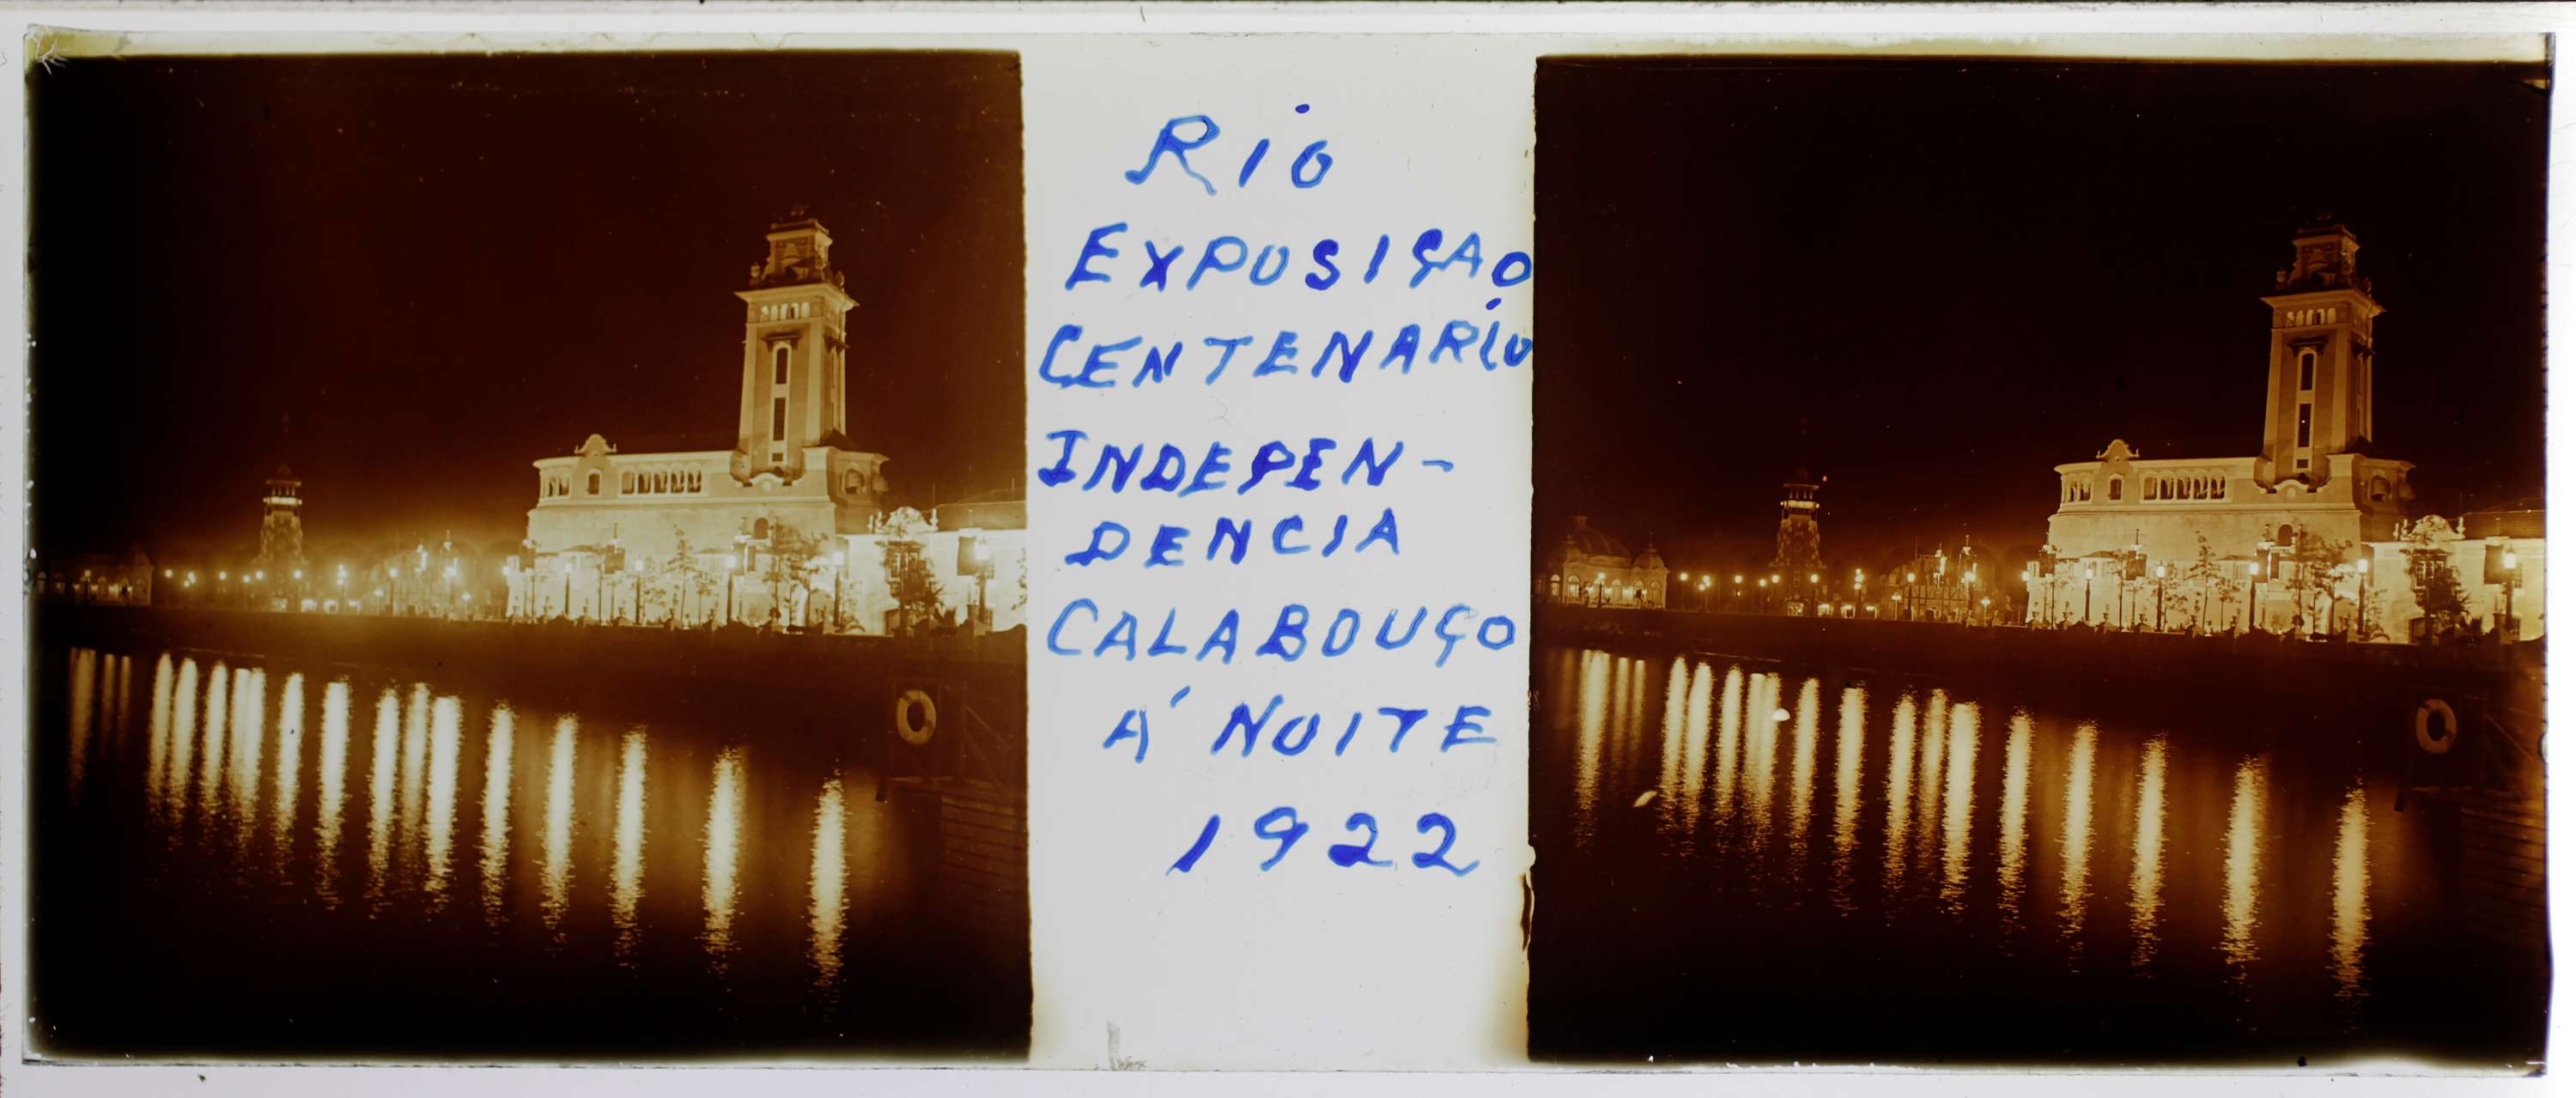 RiO
EXPOSIÇAO
CENTENARIO
INDEPEN-
DENCIA
CALABOUÇO
Á NOITE
1922